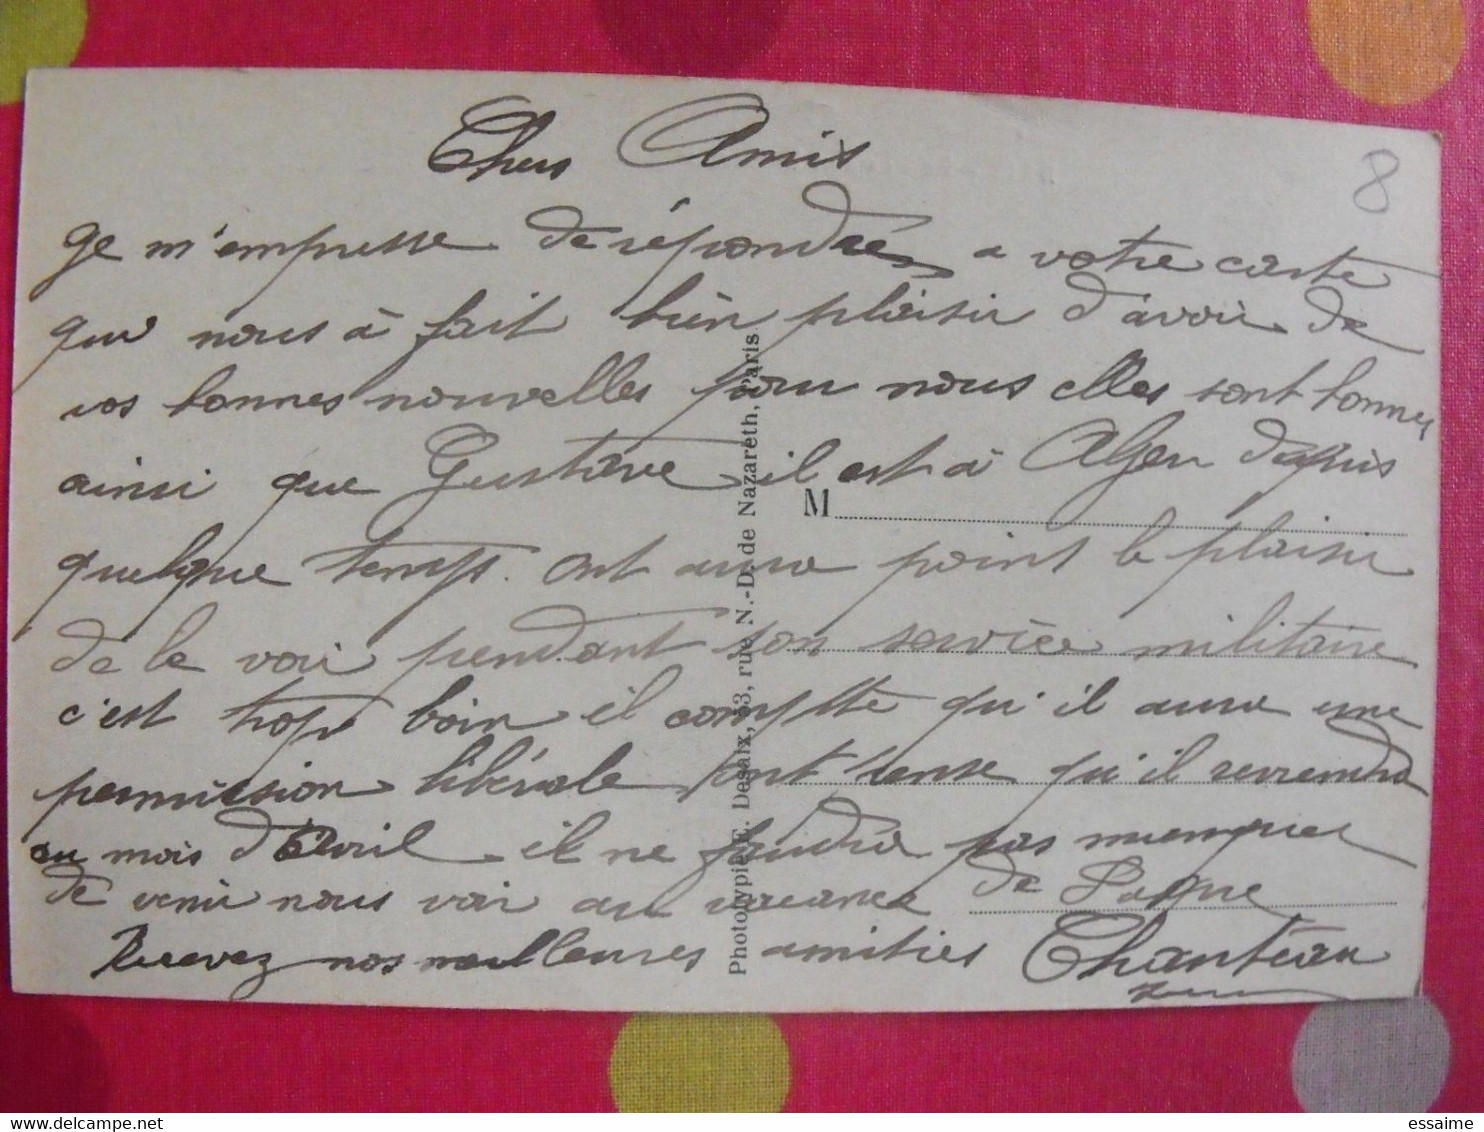 Chers Amis
8
Je m'empresse de répondre a votre carte
qui nous à fait bien plaisir d'avoir de
vos bonnes nouvelles pour nous elles sont bonnes
ainsi que Gustave il est à Alger depuis
M
quelque temps. ont aura point le plaisir
de le voir pendant son service militaire
c'est trop loin il compte qu'il aura une
permission libérale qu'il reviendra
au mois d'Avril il ne faudra pas manquer
de venir nous voir au vacance de Paque
Recevez nos meilleures amities Chanteau
Phototypie E. Desaix, 33, rue N.-D. de Nazareth, Paris
essaime